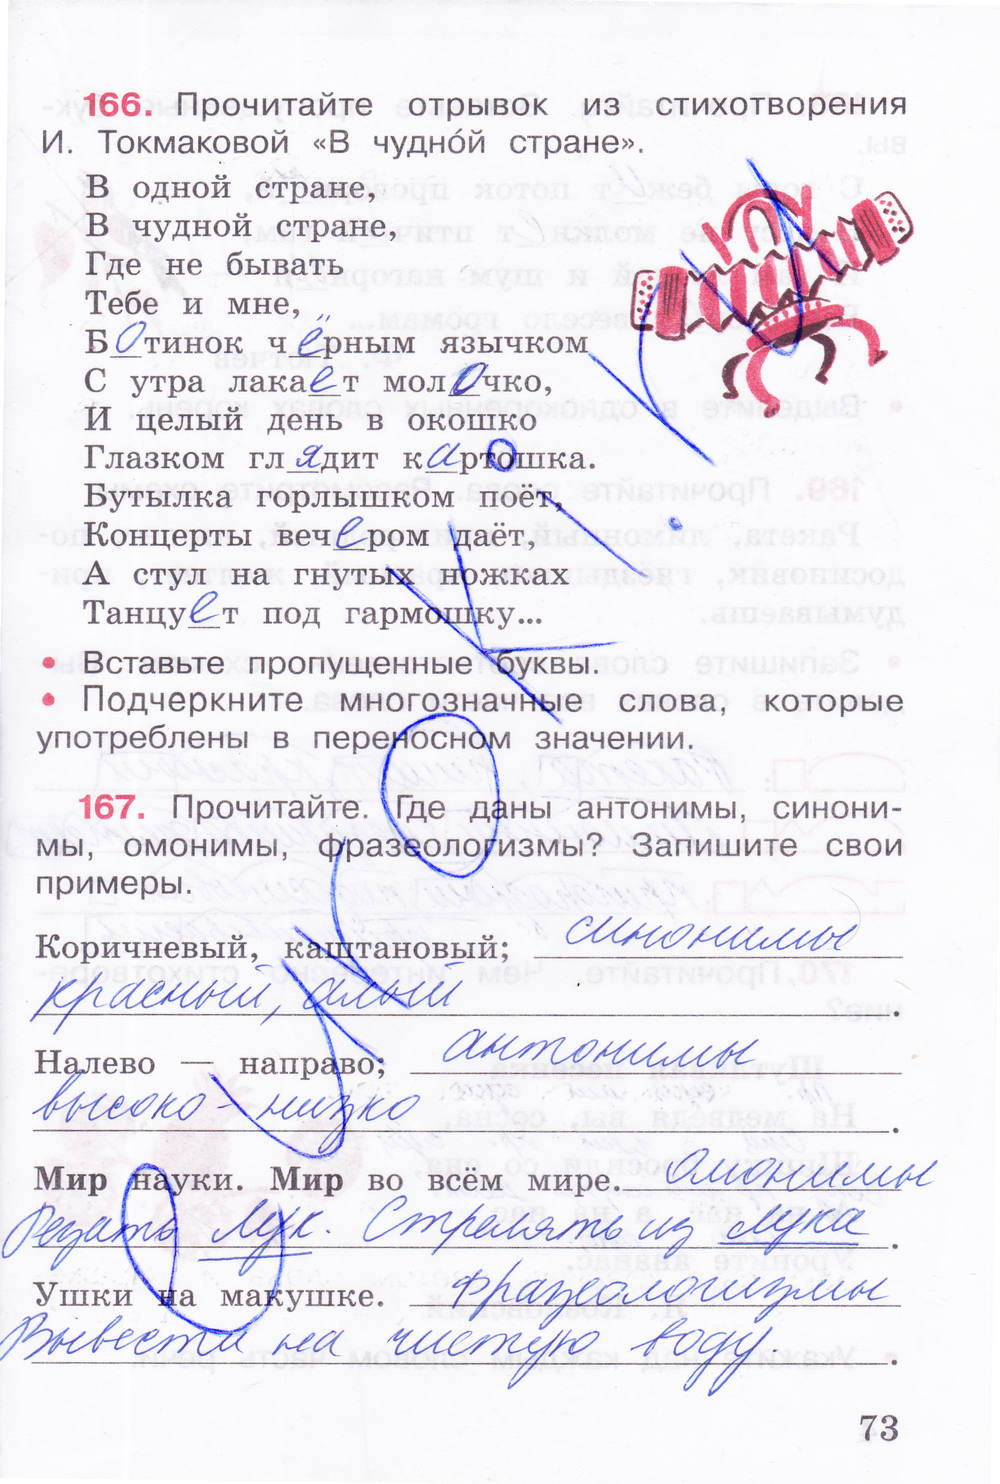 166. Прочитайте отрывок из стихотворения
И. Токмаковой «В чудно́й стране».
В одной стране,
В чудной стране,
Где не бывать
Тебе и мне,
Ботинок чёрным язычком
С утра лакает молочко,
И целый день в окошко
Глазком глядит картошка.
Бутылка горлышком поёт,
Концерты вечером даёт,
А стул на гнутых ножках
Танцует под гармошку...
• Вставьте пропущенные буквы.
• Подчеркните многозначные слова, которые
употреблены в переносном значении.
167. Прочитайте. Где даны антонимы, синони-
мы, омонимы, фразеологизмы? Запишите свои
примеры.
Коричневый, каштановый; синонимы
красный, алый.
Налево — направо; антонимы
высоко - низко.
Мир науки. Мир во всём мире. омонимы
Резать лук. Стрелять из лука.
Ушки на макушке. фразеологизмы
Вывести на чистую воду.
73